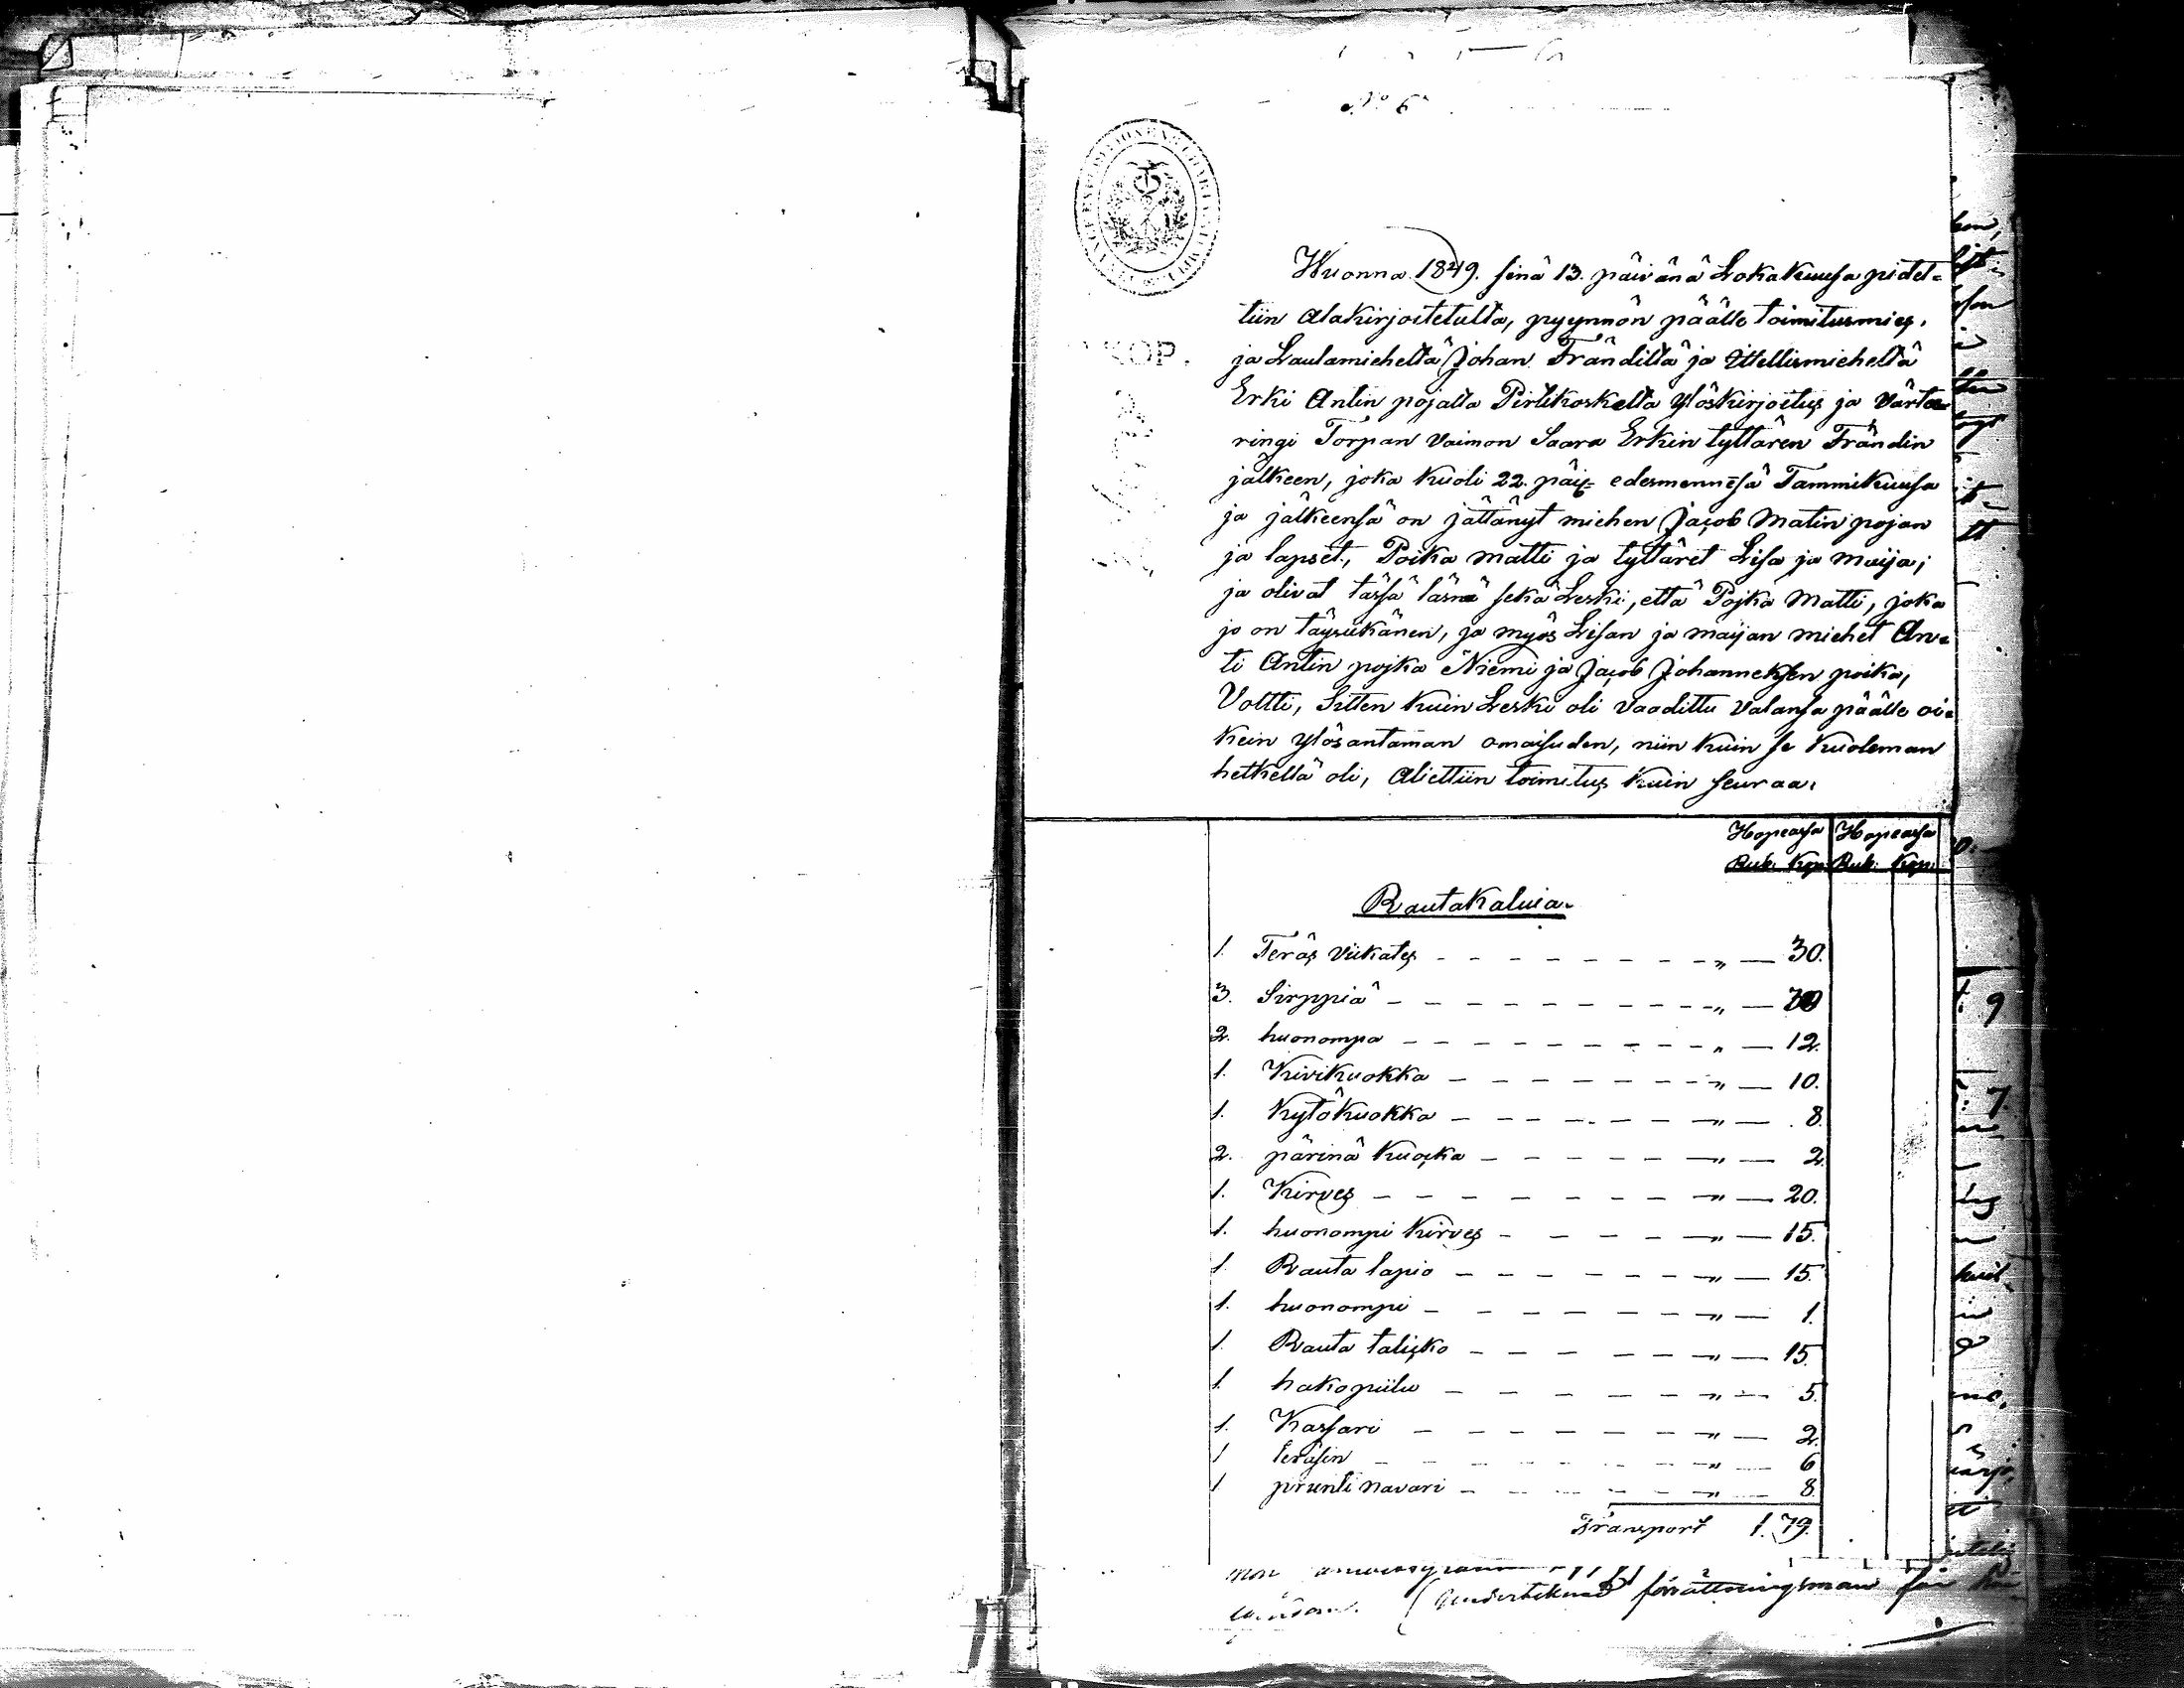 No 6
KOP.
Wuonna 1849. sinä 13. päivänä Lokakuusa pidet-
tiin alakirjoitetulta, pyynnön päälle toimitusmies,
ja Lautamieheltä Johan Frändiltä ja Ittellismieheltä
Erki Antin pojalta Pirtikoskelta ylöskirjoitus ja värte-
ringi Torpan vaimon Saara Erkin tyttären Frändin
jälkeen, joka kuoli 22. päiv= edesmennesä Tammikuusa
ja jälkeensä on jättänyt miehen Jacob Matin pojan
ja lapset, Poika Matti ja tyttäret Lisa ja Maija;
ja olivat tässä läsnä sekä Leski, että Pojka Matti, joka
jo on täysikänen, ja myös Lisan ja Maijan miehet An-
ti Antin pojka Niemi ja Jacob Johanneksen poika,
Voltti, Sitten kuin Leski oli vaadittu valansa päälle oi-
kein ylösantaman omaisuden, niin kuin se kuoleman
hetkellä oli, aliettiin toimitus kuin seuraa.
Hopeasa Hopeasa
Rub. Kop. Rub. Kop.
Rautakaluia.
1. Teräs viikates " — 30.
3. Sirppiä " —
2. huonompa " — 12.
1. Kivikuokka " — 10.
1. Kytökuokka " — 8.
2. pärinä kuocka " — 2.
1. Kirves " — 20.
1. huonompi kirves " — 15.
1. Rauta lapio " — 15.
1. huonompi " — 1.
1. Rauta talicko " — 15.
1. hakopiilu " — 5.
1. Kassari " — 2.
1 " — 6
1 prunti navari " — 8.
Transport 1. 79.
förrättningsman för